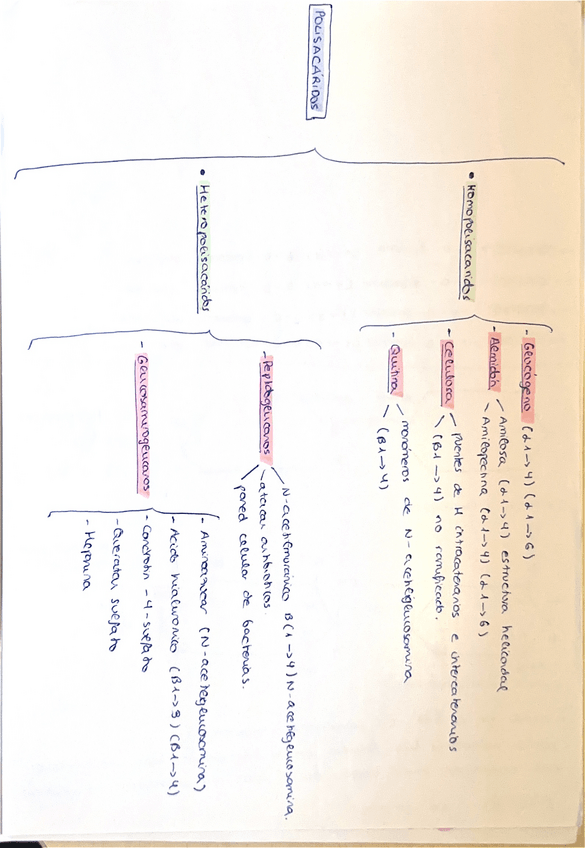 POLISACÁRIDOS
• Homopolisacaridos
- Glucógeno (α1→4) (α1→6)
- Almidón
Amilosa (α1→4) estructura helicoidal
Amilopectina (α1→4) (α1→6)
- Celulosa
puentes de H intracatenarios e intercatenarios
(B1→4) no ramificado.
- Quitina
monómeros de N-acetilglucosamina
(B1→4)
• Heteropolisacáridos
- Peptidoglucanos
N-acetilmuránico B(1→4) N-acetilglucosamina.
atacar antibióticos
pared celular de bacterias.
- Glucosaminoglucanos
- Aminoazúcar (N-acetilglucosamina)
- Acido hialurónico (B1→3) (B1→4)
- Condrotin-4-sulfato
- Queratan sulfato
- Heparina